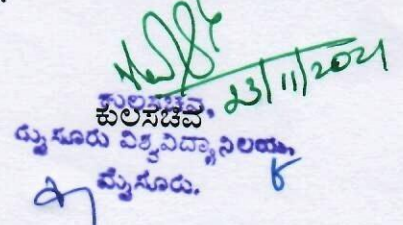 23/11/2021
ಕುಲಸಚಿವ,
ಕುಲಸಚಿವ
ಮೈಸೂರು ವಿಶ್ವವಿದ್ಯಾನಿಲಯ,
ಮೈಸೂರು.